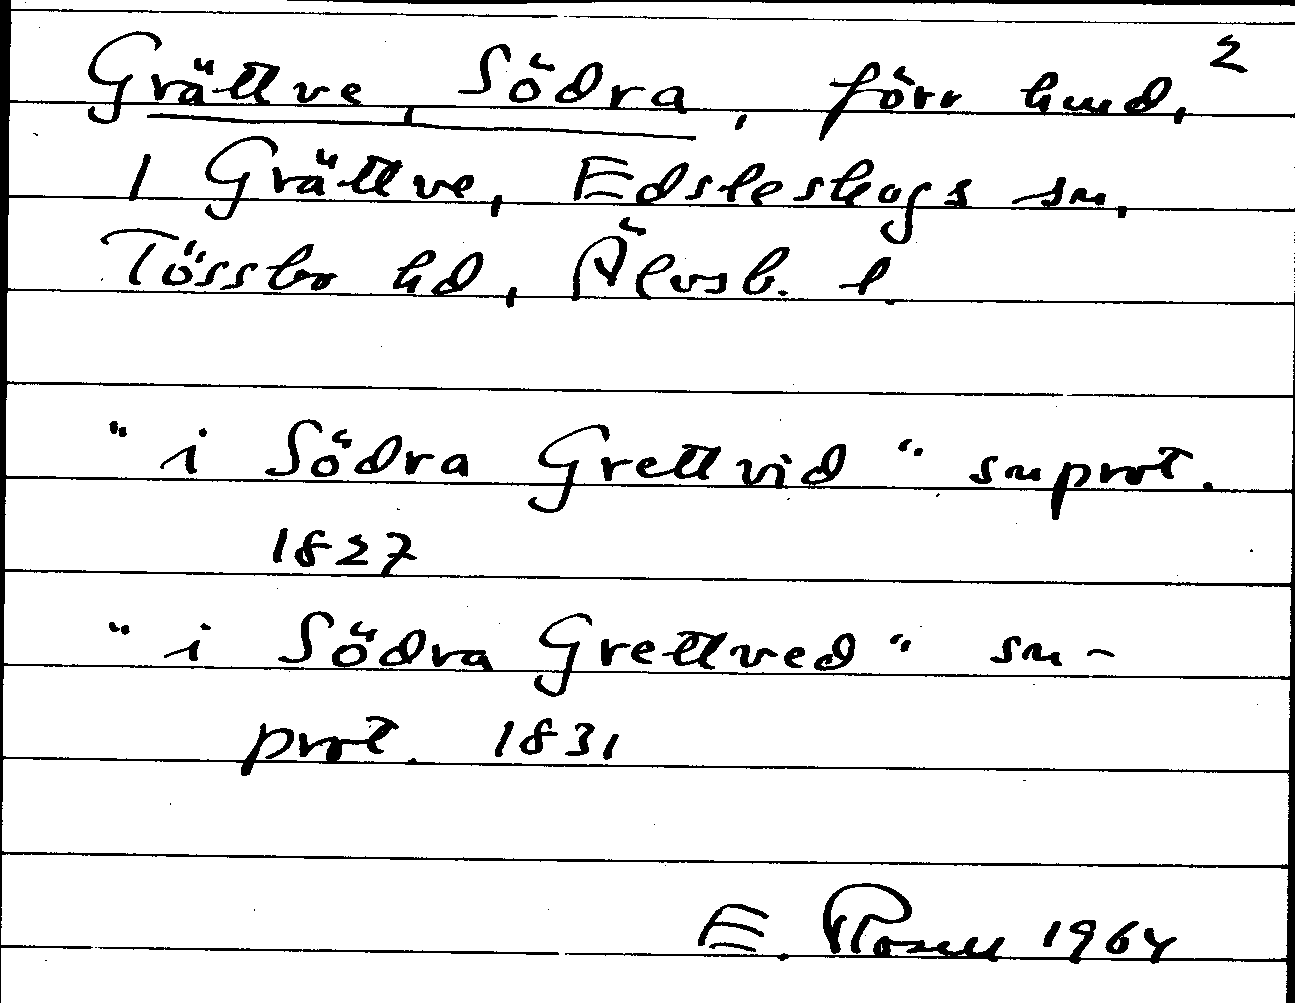 2
Grättve, Södra, förr hmd,
1 Grättve, Edsleskogs sn,
Tössbo hd, Älvsb. l.
" i Södra Grettvid " snprot.
1827
" i Södra Grettved " sn-
prot. 1831
E. Rosell 1964